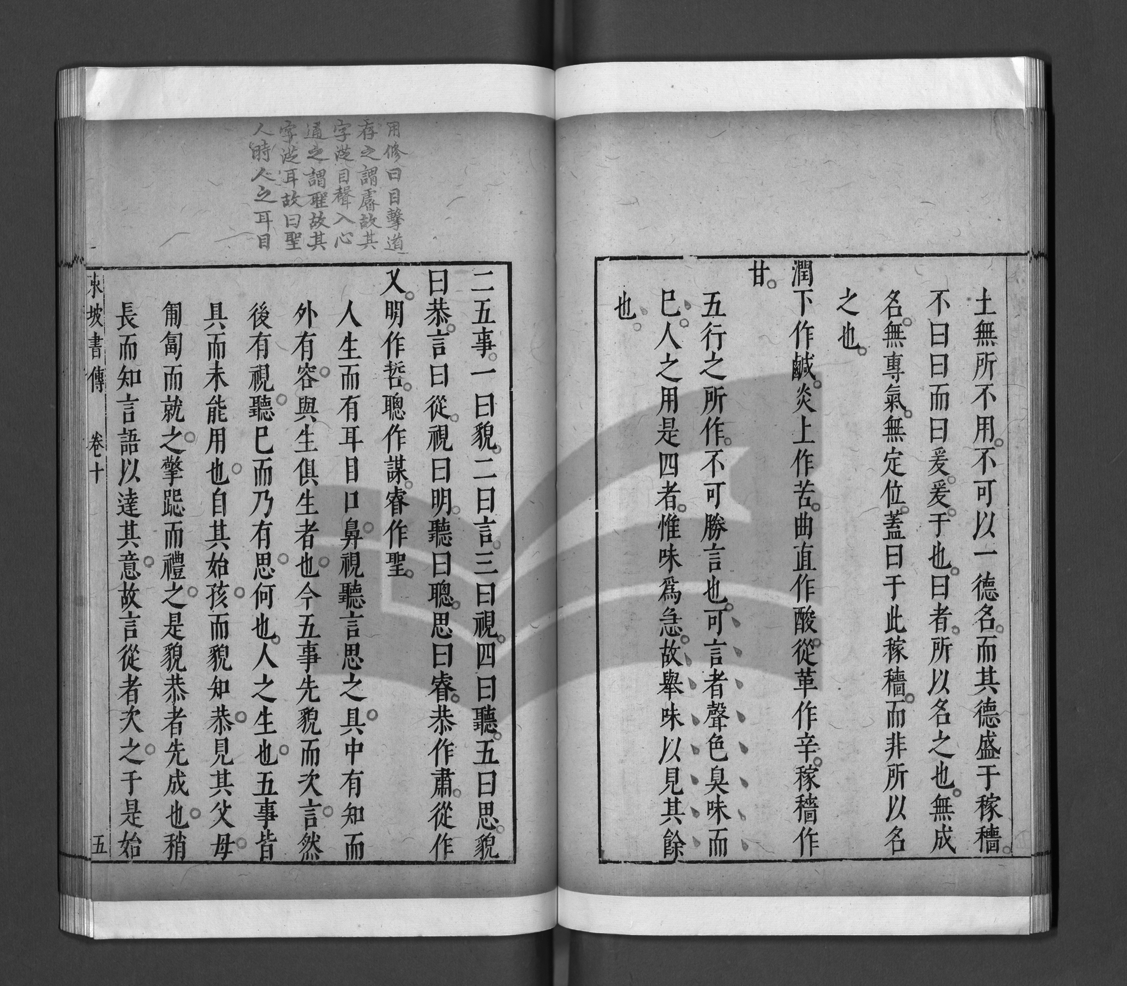 土無所不用不可以一德名而其德盛于稼穡
不曰曰而曰爰爰于也曰者所以名之也無成
名無專氣無定位蓋曰于此稼穡而非所以名
之也
潤下作鹹炎上作苦曲直作酸從革作辛稼穡作
甘
五行之所作不可勝言也可言者聲色臭味而
巳人之用是四者惟味爲急故舉味以見其餘
也
用修曰目擊道
存之謂睿故其
字從目聲入心
通之謂聖故其
字從耳故曰聖
人時人之耳目
二五事一曰貌二曰言三曰視四曰聽五曰思貌
曰恭言曰從視曰明聽曰聰思曰睿恭作肅從作
乂明作哲聰作謀睿作聖
人生而有耳目口鼻視聽言思之具中有知而
外有容與生俱生者也今五事先貌而次言然
後有視聽巳而乃有思何也人之生也五事皆
具而未能用也自其始孩而貌知恭見其父母
匍匐而就之擎跽而禮之是貌恭者先成也稍
長而知言語以達其意故言從者次之于是始
東坡書傳 卷十 五